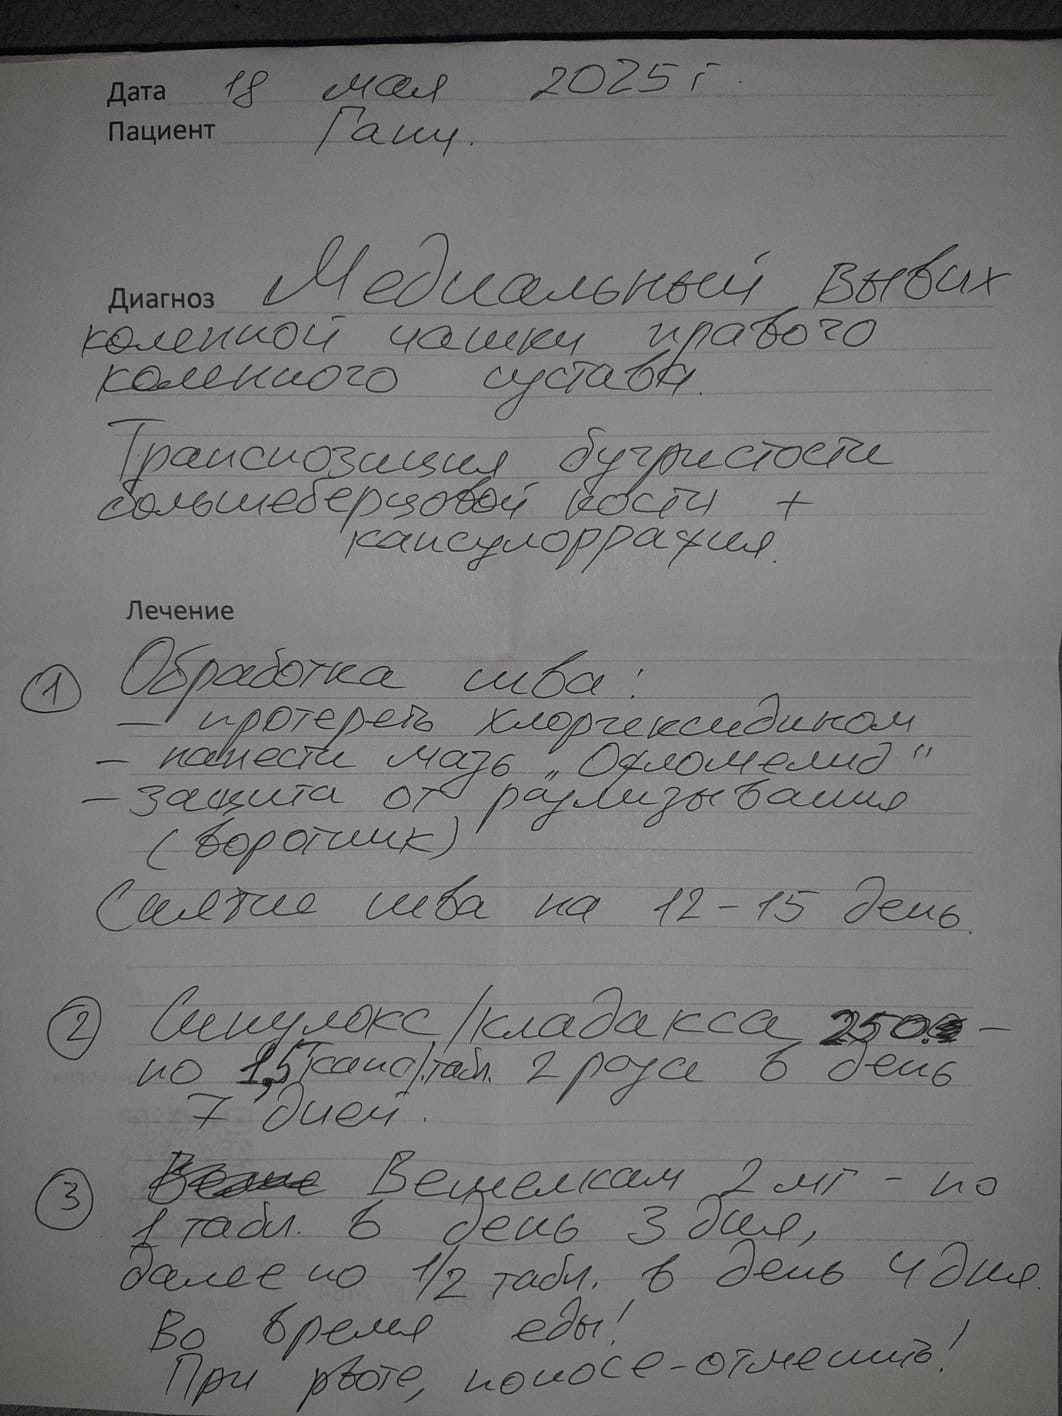 Дата 18 мая 2025 г.
Пациент Ганц.
Диагноз Медиальный вывих
коленной чашки правого
коленного сустава.
Транспозиция бугристости
большеберцовой кости +
капсулоррахия.
Лечение
1 Обработка шва:
- протереть хлоргексидином
- нанести мазь „Офломелид"
- защита от разлизывания
(воротник)
Снятие шва на 12-15 день.
2 Синулокс/кладакса 250 -
по 1,5 табл. 2 раза в день
7 дней.
3 Вешелкам 2 мг - по
1 табл. в день 3 дня,
далее по 1/2 табл. в день 4 дня.
Во время еды!
При рвоте, поносе-отменить!